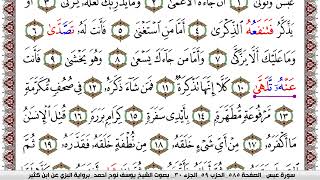 عَبَسَ وَتَوَلَّىٰ ١ أَن جَاءَهُ الْأَعْمَىٰ ٢ وَمَا يُدْرِيكَ لَعَلَّهُ يَزَّكَّىٰ ٣ أَوْ
يَذَّكَّرُ فَتَنفَعُهُ الذِّكْرَىٰ ٤ أَمَّا مَنِ اسْتَغْنَىٰ ٥ فَأَنتَ لَهُ تَصَّدَّىٰ ٦
وَمَا عَلَيْكَ أَلَّا يَزَّكَّىٰ ٧ وَأَمَّا مَن جَاءَكَ يَسْعَىٰ ٨ وَهُوَ يَخْشَىٰ ٩ فَأَنتَ
عَنْهُۥ تَّلَهَّىٰ ١٠ كَلَّا إِنَّهَا تَذْكِرَةٌ ١١ فَمَن شَاءَ ذَكَرَهُ ١٢ فِي صُحُفٍ مُّكَرَّمَةٍ
١٣ مَّرْفُوعَةٍ مُّطَهَّرَةٍ ١٤ بِأَيْدِي سَفَرَةٍ ١٥ كِرَامٍ بَرَرَةٍ ١٦ قُتِلَ الْإِنسَانُ
مَا أَكْفَرَهُ ١٧ مِنْ أَيِّ شَيْءٍ خَلَقَهُ ١٨ مِن نُّطْفَةٍ خَلَقَهُ فَقَدَّرَهُ ١٩ ثُمَّ
سورة عبس الصفحة ٥٨٥ الحزب ٥٩ الجزء ٣٠ بصوت الشيخ يوسف نوح احمد برواية البزي عن ابن كثير